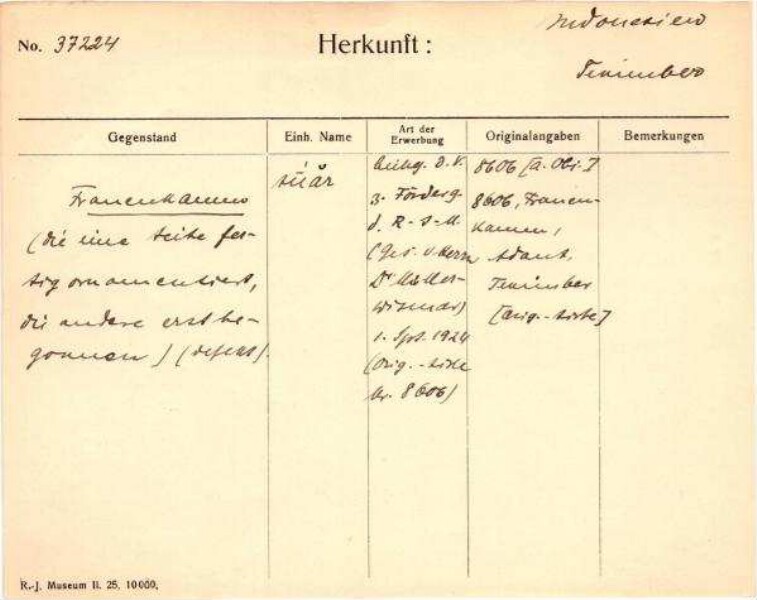 No. 37224
Herkunft :
Indonesien
Tenimber
Gegenstand
Einh. Name
Art der Erwerbung
Originalangaben
Bemerkungen
Frauenkamm
(die eine Seite fer-
tig ornamentiert,
die andere erst be-
gonnen) (defekt).
süår
z. Förderg.
d. R-J-M.
(Ges. v. Herrn
Dr Müller-
Wismar)
1. Spt. 1924
(Orig.-Liste
Nr. 8606)
8606 [a. Obj.]
8606, Frauen-
kamm,
Tenimber
[Orig.-Liste]
R.-J. Museum II. 25. 10000.